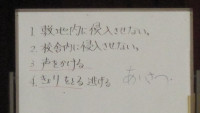 1. 敷地内に侵入させない。
2. 校舎内に侵入させない。
3. 声をかける
4. きょりをとる 逃げる
あいさつ